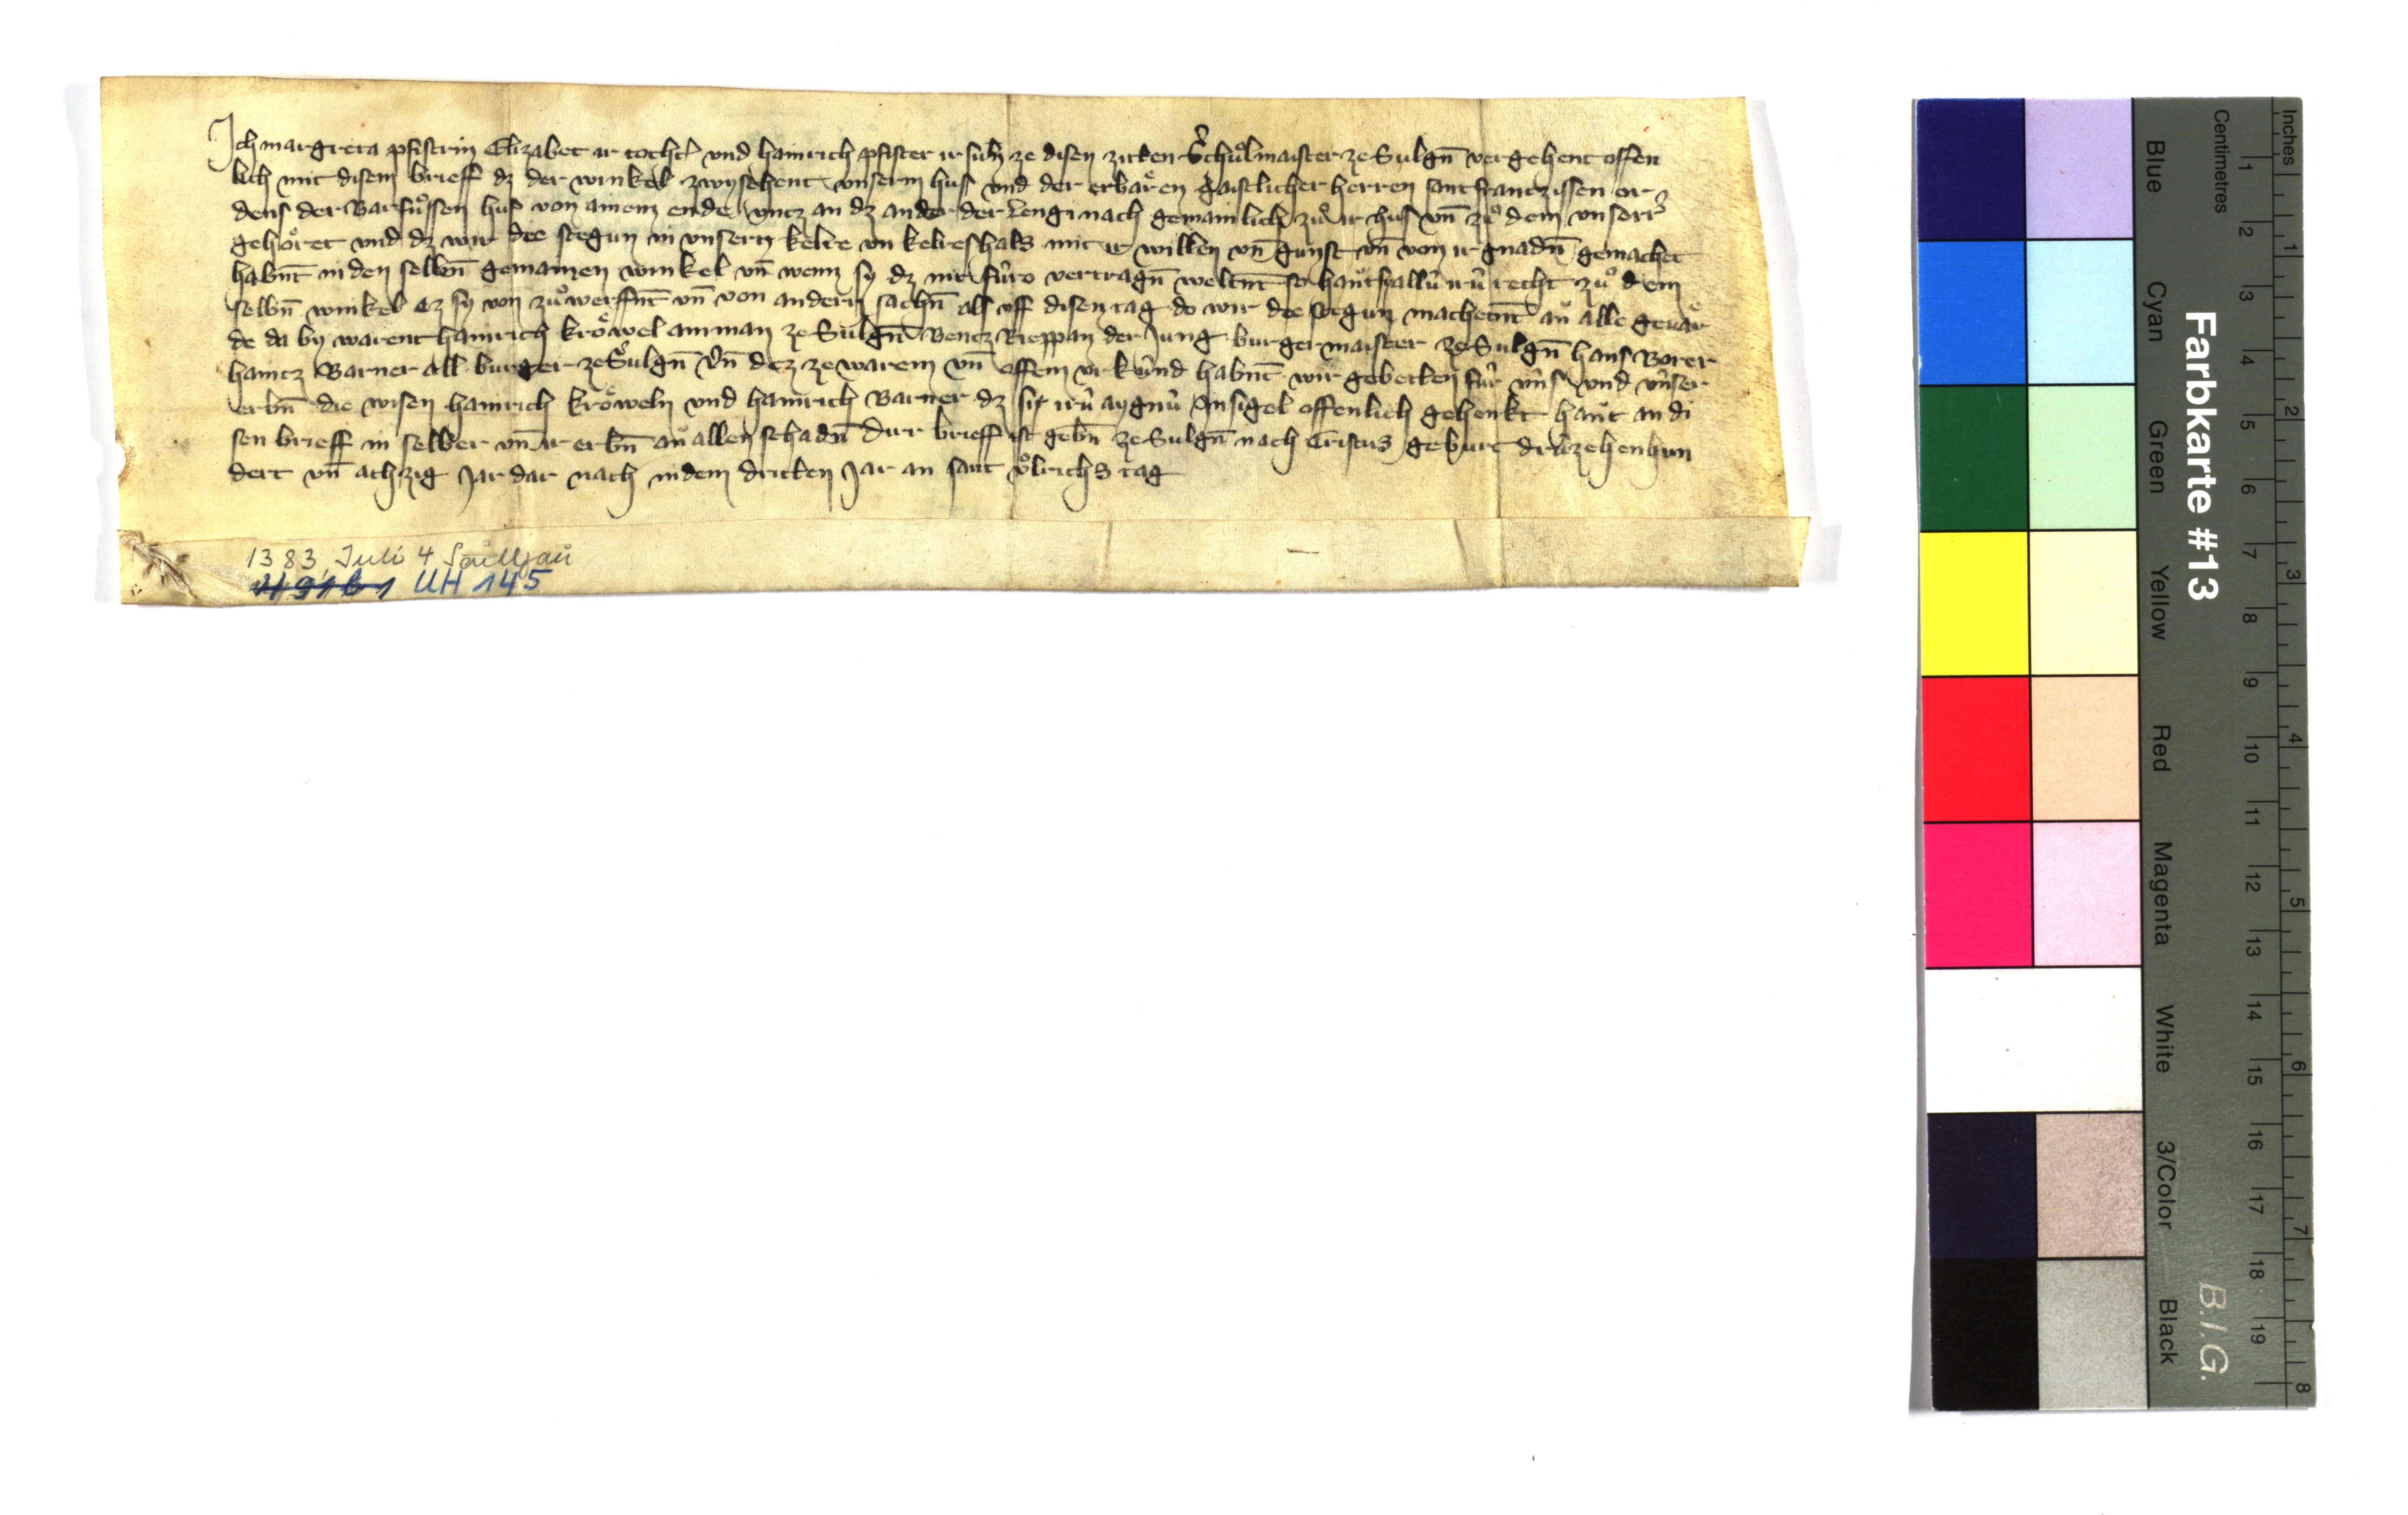 Ich margreta pfistrin Elizabet ir tocht̓ vnd hainrich pfister ir sun ze disen ziten Schuͦlmaister ze Sulgn̄ vergehent offen
lich mit disem brieff dz der winkel zwyschent vnserm hus vnd der erbaͤren gaistlicher herren sant frantzissen or
dens der Barfuͦssen hus von ainem ende vntz an dz ander der Lengi nach gemainlich zuͦ ir hus vn̄ zuͦ dem vnserr̓
gehoͤret vnd dz wir die stegun in vnsern kelre vn kelreshals mit ir willen vn̄ gunst vn̄ von ir gnadn̄ gemachet
habn̄t in den selbn̄ gemainen winkel vn̄ wenn sy dz nit fuͤro vertragn̄ weltn̄t so hant sy allû irû recht zuͦ dem
selbn̄ winkel ez sy von zuͦwerffn̄t vn̄ von andern sachn̄ als vff disen tag do wir die stegun machetn̄t an alle gevaͤr
de da by warent hainrich kroͤwel amman ze Sulgn̄ Bentz Rieppan der Jung burgermaister ze Sulgn̄ hans Borer
haintz Barner all burger ze Sulgn̄ vn̄ dez ze warem vn̄ offem vrkûnd habn̄t wir gebetten fûr vns vnd vnser
erbn̄ die wisen hainrich kroͤweln vnd hainrich Barner dz sis irû aygnû Insigel offenlich gehenkt hant an di
sen brieff in selber vn̄ ir erbn̄ an allen schadn̄ Dirr brieff ist gebn̄ ze Sulgn̄ nach Cristus geburt drûzehenhun
dert vn̄ athzig Jar dar nach in dem dritten Jar an sant vͦlrichs tag
1383, Juli 4 Saulgau
UH 145
Farbkarte #13
B.I.G.
Inches 1 2 3 4 5 6 7 8
Centimetres 1 2 3 4 5 6 7 8 9 10 11 12 13 14 15 16 17 18 19
Blue
Cyan
Green
Yellow
Red
Magenta
White
3/Color
Black